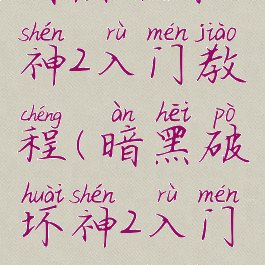 shén rù mén jiào
神2入门教
chéng àn hēi pò
程(暗黑破
huài shén rù mén
坏神2入门